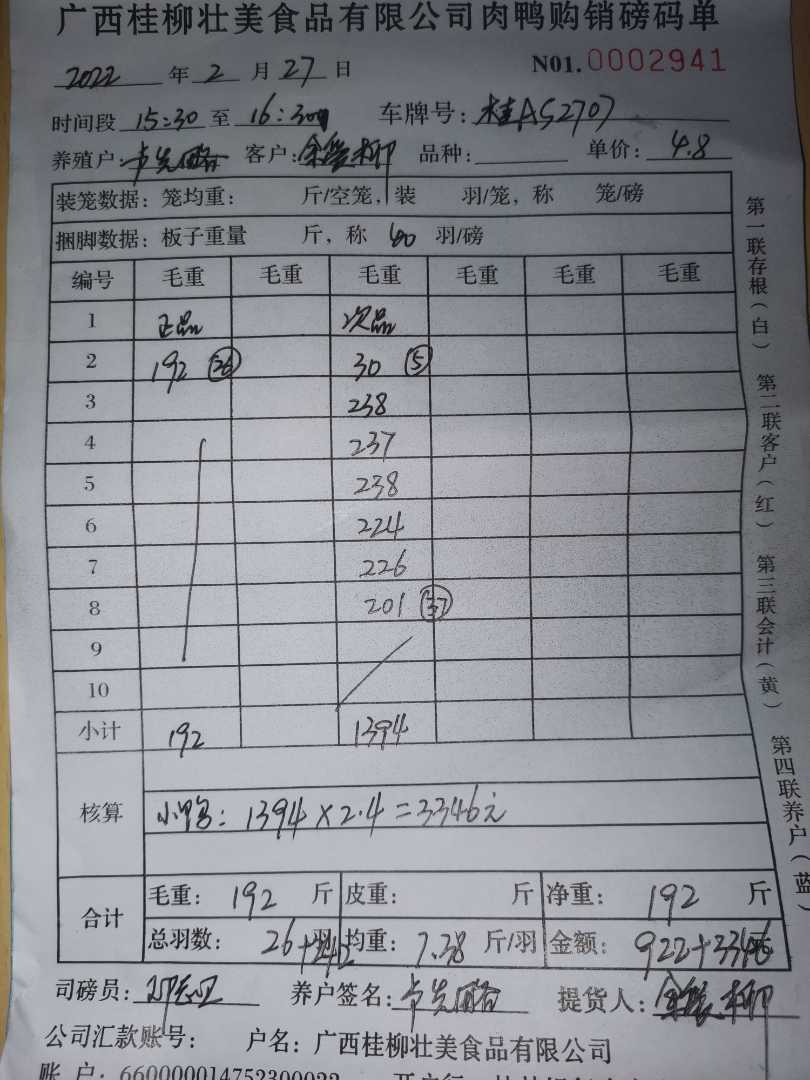 广西桂柳壮美食品有限公司肉鸭购销磅码单
2022 年 2 月 27 日 N01. 0002941
时间段 15:30 至 16:30 车牌号: 桂AS2707
养殖户: 客户: 品种: 单价: 4.8
装笼数据: 笼均重: 斤/空笼, 装 羽/笼, 称 笼/磅
捆脚数据: 板子重量 斤, 称 40 羽/磅
编号 毛重 毛重 毛重 毛重 毛重 毛重
1 正品 次品
2 192 26 30 5
3 238
4 237
5 238
6 224
7 226
8 201 37
9
10
小计 192 1394
核算 小鸭: 1394×2.4=3346元
合计 毛重: 192 斤 皮重: 斤 净重: 192 斤
总羽数: 26+242 羽 均重: 7.38 斤/羽 金额: 922+3346
司磅员: 养户签名: 提货人:
公司汇款账号: 户名: 广西桂柳壮美食品有限公司
账 户: 660000014752300022
第一联存根(白) 第二联客户(红) 第三联会计(黄) 第四联养户(蓝)